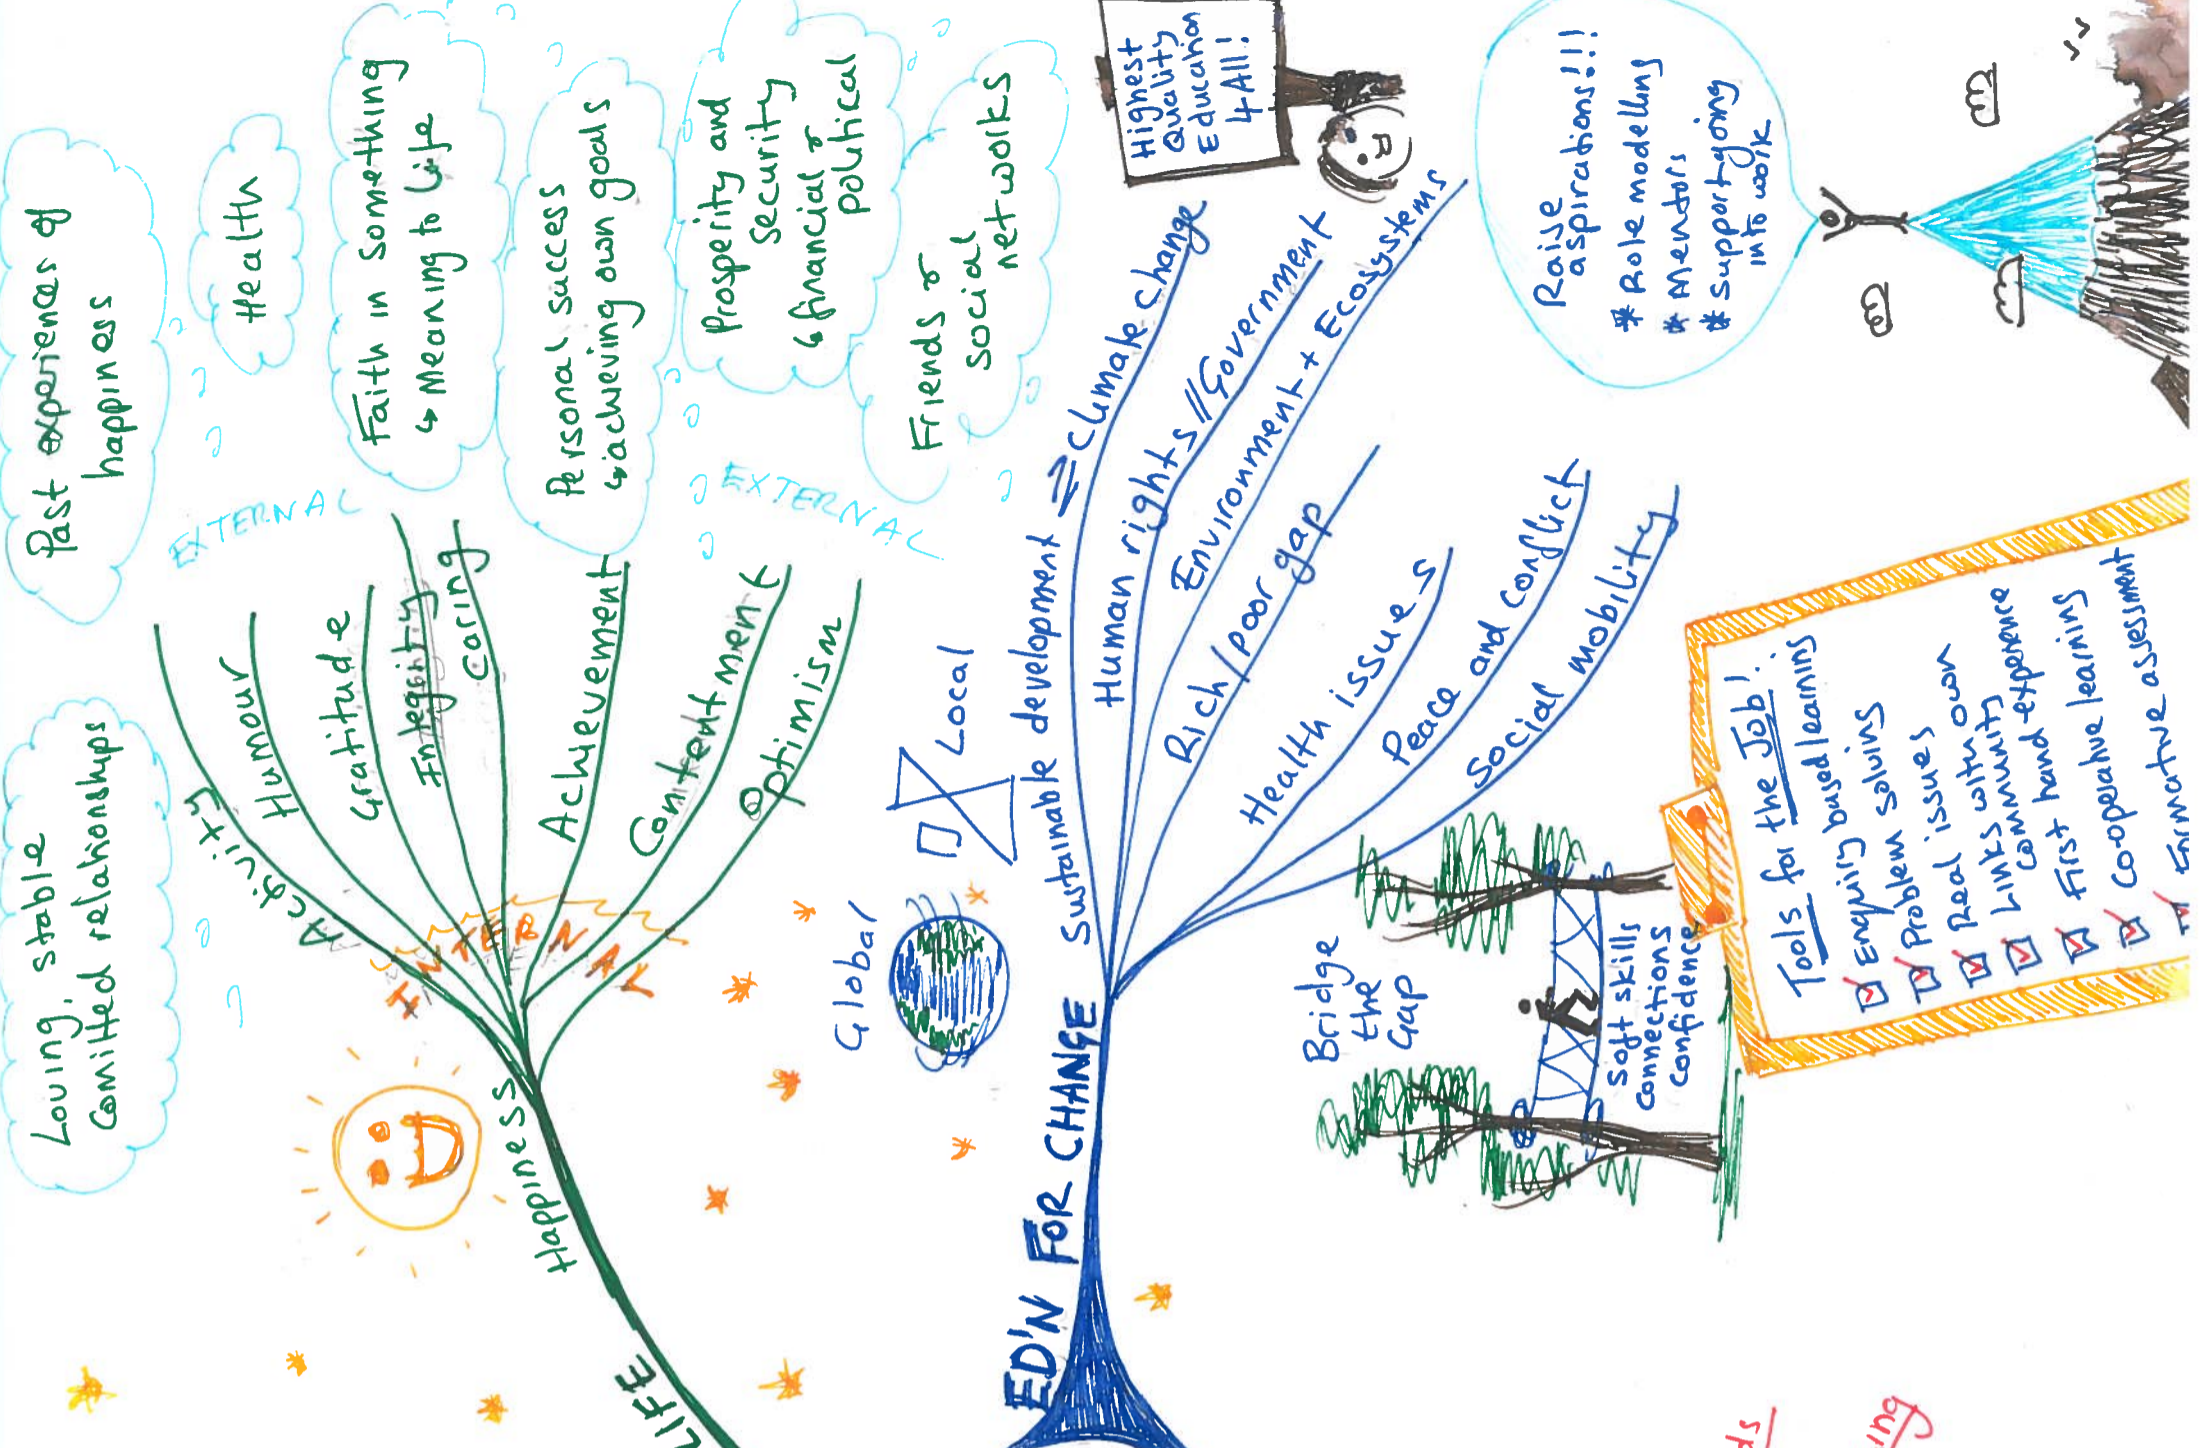 Loving, stable
comitted relationships
Past experiences of
happiness
EXTERNAL
Health
Faith in something
↳ Meaning to life
Personal success
↳ achieving own goals
Prosperity and
security
↳ financial &
political
Friends &
social
networks
EXTERNAL
LIFE
Happiness
INTERNAL
Activity
Humour
Gratitude
Integrity
Caring
Achievement
Contentment
Optimism
Global
Local
ED'N FOR CHANGE
Sustainable development ⇌ Climate change
Human rights//Government
Environment + Ecosystems
Rich/poor gap
Health issues
Peace and conflict
Social mobility
Highest
Quality
Education
4 All!
Raise
aspirations!!!
* Role modelling
* Mentors
* Support going
into work
Bridge
the
Gap
Soft skills
connections
confidence
Tools for the Job!:
Enquiry based learning
Problem solving
Real issues
Links with own
community
First hand experience
Co-operative learning
Formative assessment
ds
ing